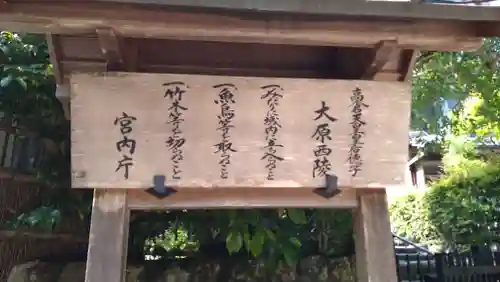 高倉天皇皇后徳子
大原西陵
一、みだりに域内に立ち入らぬこと
一、魚鳥等を取らぬこと
一、竹木等を切らぬこと
宮内庁